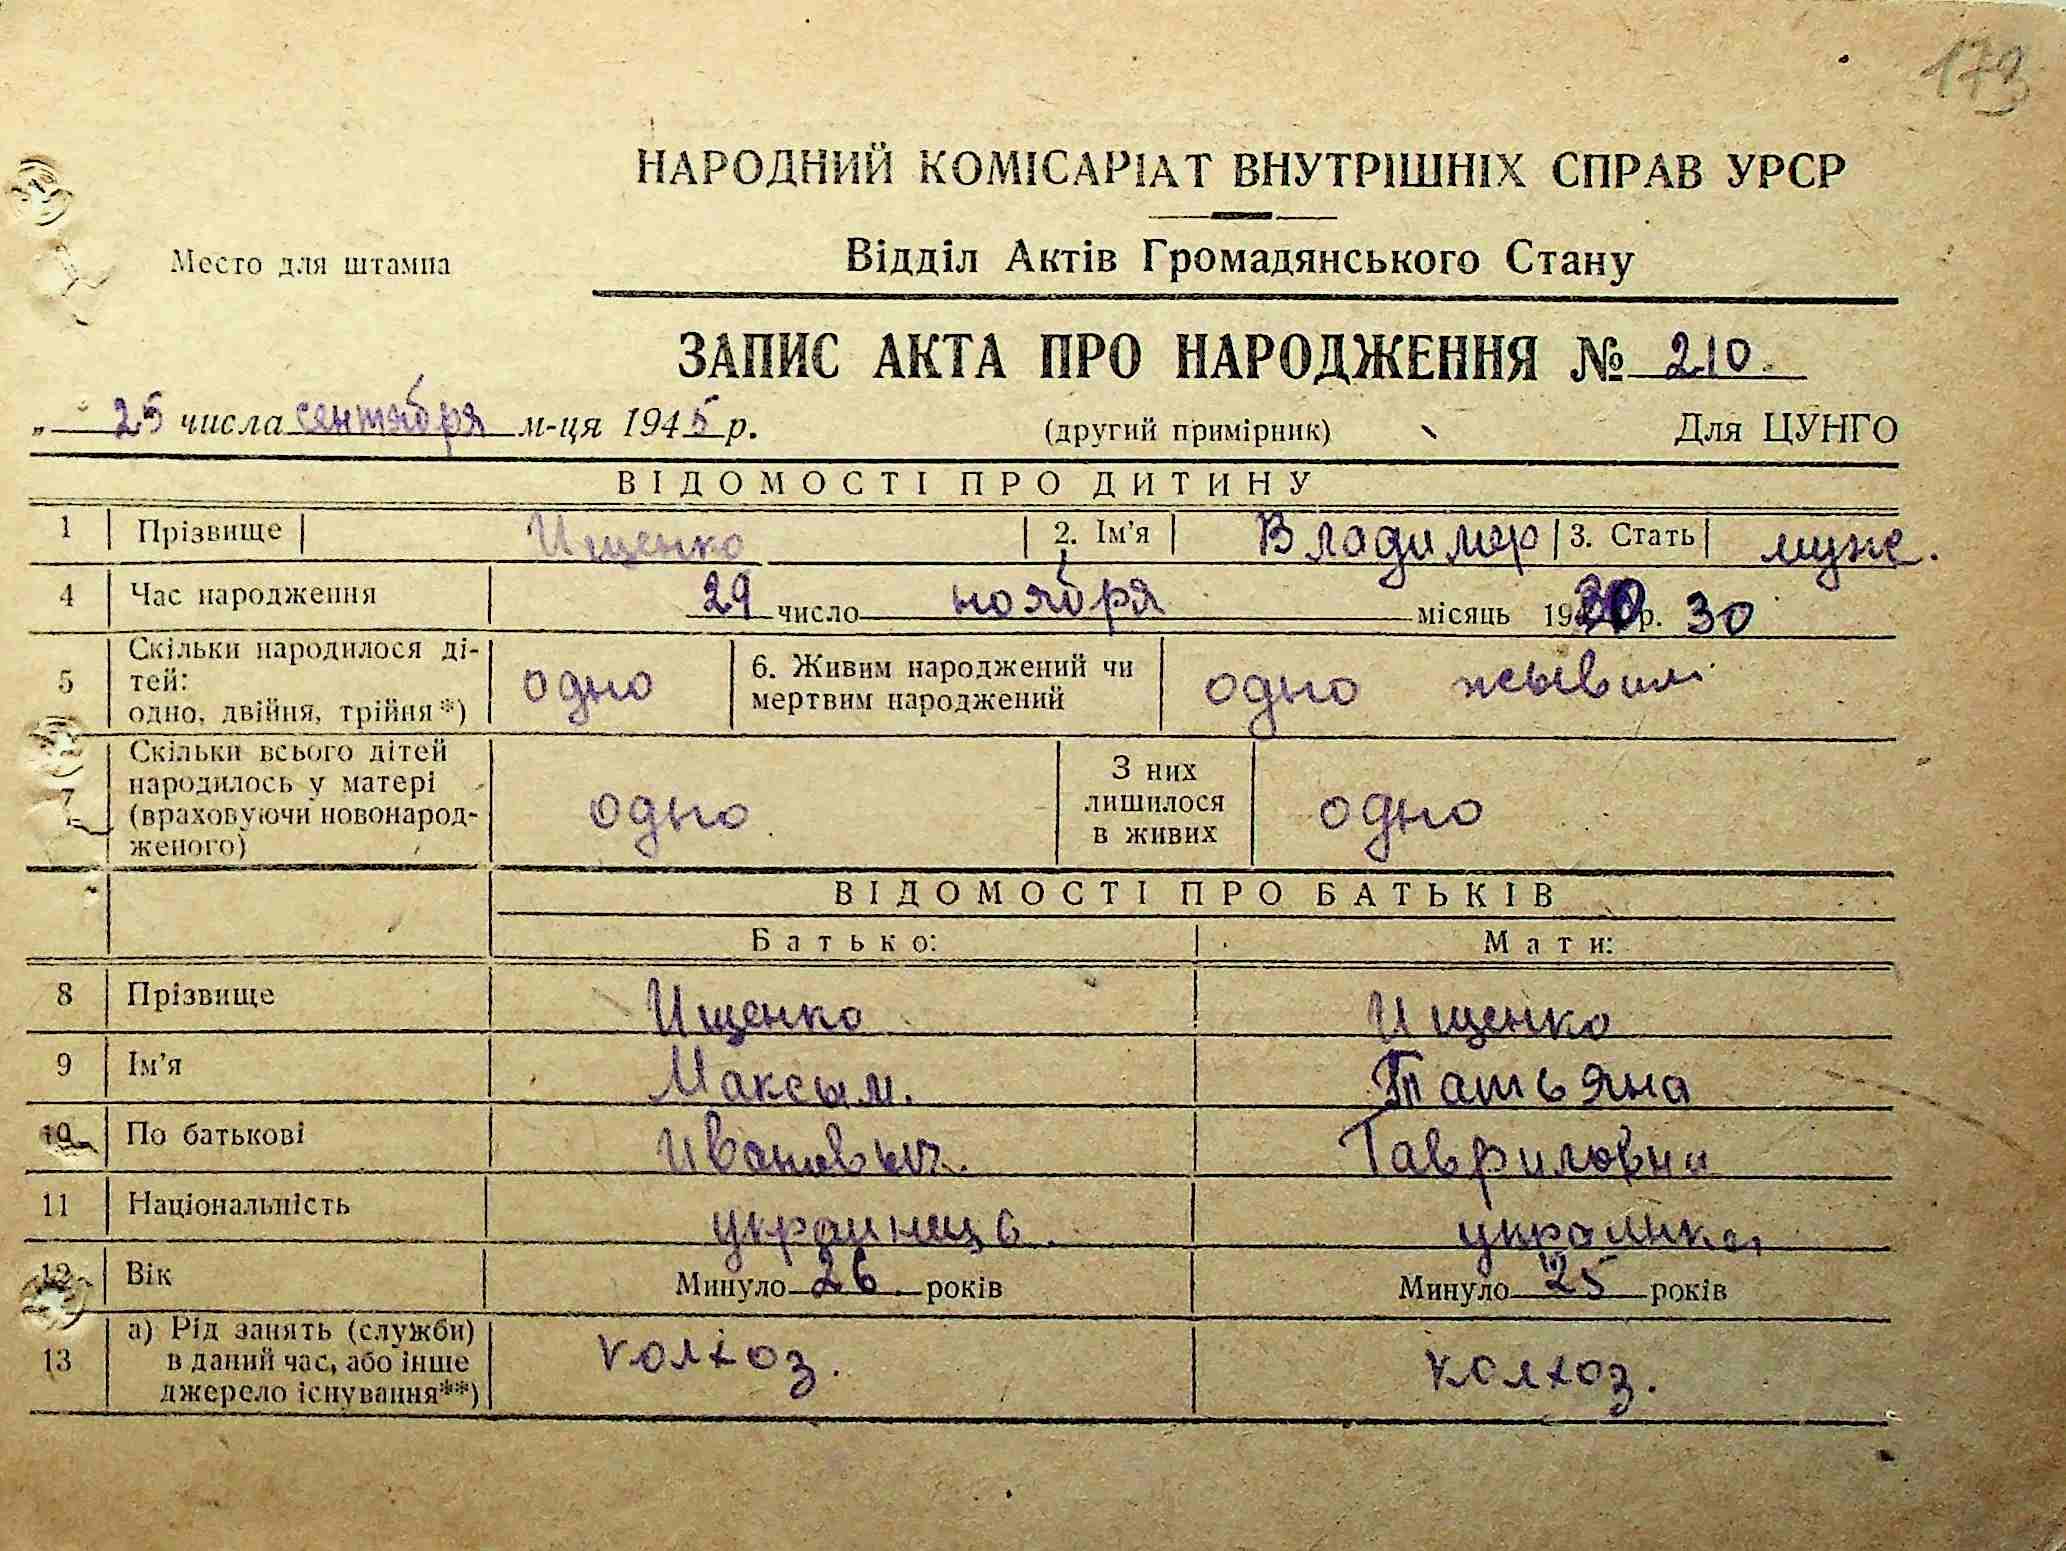 173
НАРОДНИЙ КОМІСАРІАТ ВНУТРІШНІХ СПРАВ УРСР
Место для штампа
Відділ Актів Громадянського Стану
ЗАПИС АКТА ПРО НАРОДЖЕННЯ № 210.
„ 25 числа сентября м-ця 1945 р. (другий примірник) Для ЦУНГО
ВІДОМОСТІ ПРО ДИТИНУ
1 Прізвище Ищенко 2. Ім'я Владимир 3. Стать муж.
4 Час народження 29 число ноября місяць 1930 р. 30
5 Скільки народилося дітей: одно, двійня, трійня*) одно 6. Живим народжений чи мертвим народжений одно жывим
7 Скільки всього дітей народилось у матері (враховуючи новонародженого) одно З них лишилося в живих одно
ВІДОМОСТІ ПРО БАТЬКІВ
Батько: Мати:
8 Прізвище Ищенко Ищенко
9 Ім'я Максым. Татьяна
10 По батькові Ивановыч. Гавриловна
11 Національність украинець. украинка
12 Вік Минуло 26 років Минуло 25 років
13 а) Рід занять (служби) в даний час, або інше джерело існування**) колхоз. колхоз.